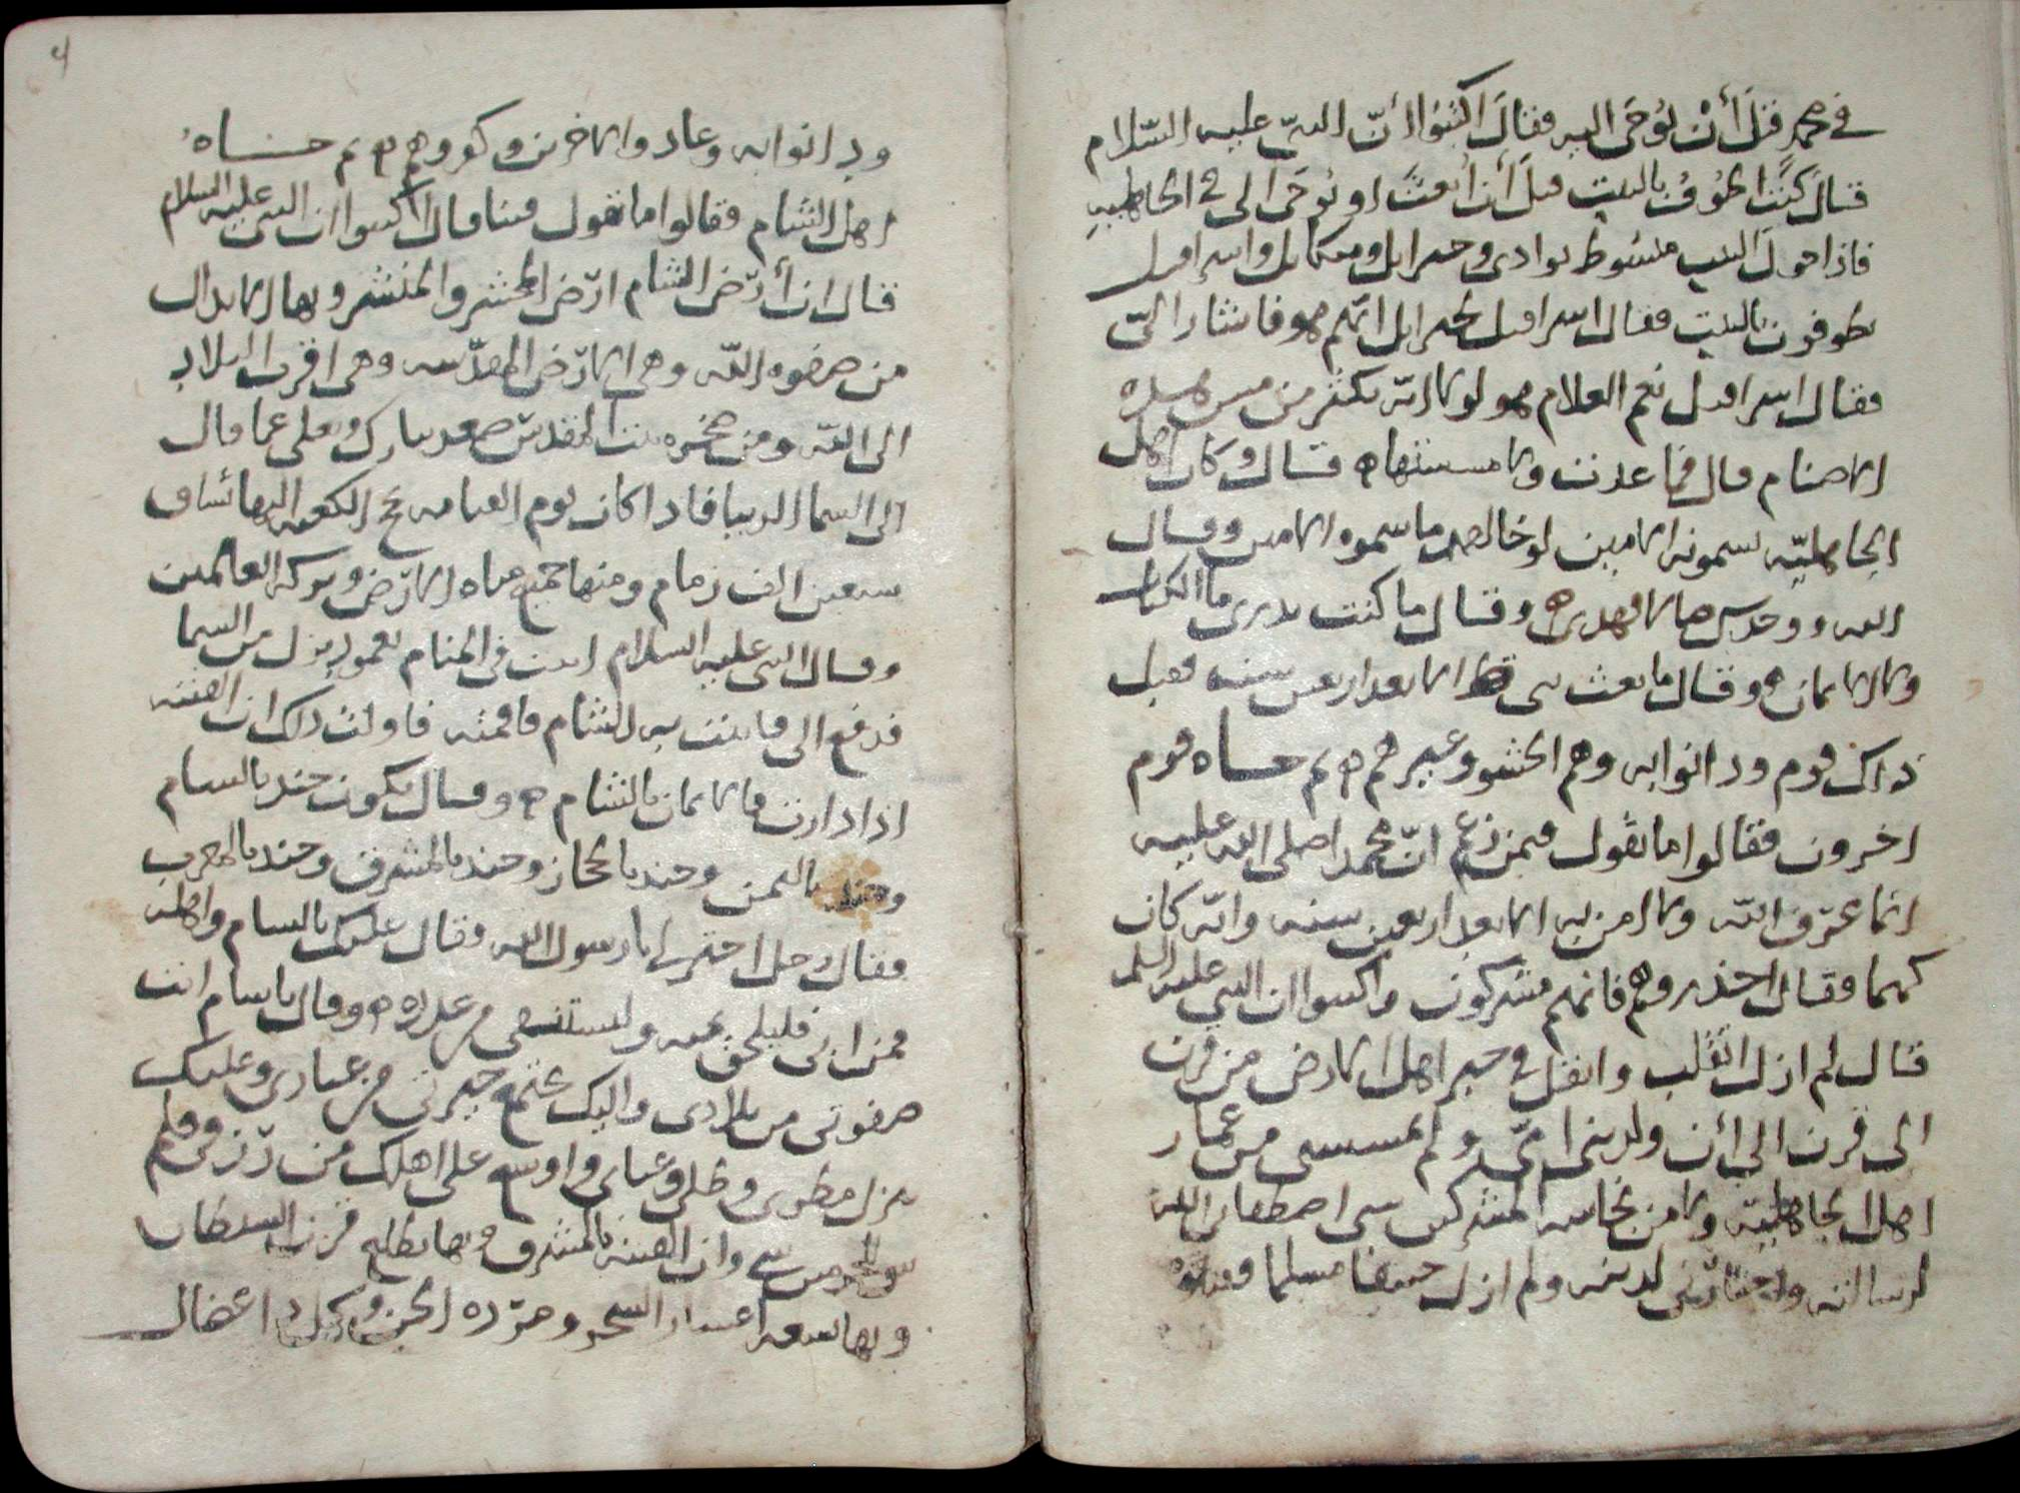 في محمد قبل أن يوحى اليه فقال اكتبوا أنّ النبيّ عليه السّلام
قال كنت اطوف بالبيت قبل أن أبعث او يوحى الى في الجاهلية
فاذا حول البيت فنوديوا وجبرايل وميكايل واسرافيل
يطوفون بالبيت فقال اسرافيل لجبرايل ايّهم هو فاشار اليّ
فقال اسرافيل نعم الغلام هو لولا انّه يكثر من مس هذه
الاصنام قال فما عدت ولا مسستها ه قال وكان اهل
الجاهليّه يسمونه الامين لو خالصهم ما سموه الامين وقال
الله ووجدك ضالا فهدى ه وقال ما كنت تدرى ما الكتاب
ولا الايمان ه وقال ما بعث نبى قط الا بعد اربعين سنه فقبل
ذلك قوم ودانوا به وهم الحشو وغيرهم ه ثم جاه قوم
اخرون فقالوا ما تقول فيمن زعم انّ محمدا صلى الله عليه
انما عرف الله ولا امن به الا بعد اربعين سنه وانّه كان
كهما فقال احذروهم فانهم مشركون واكتبوا ان النبي عليه السلم
قال لم ازل اتقلب وانقل في خير اهل الارض من قرن
الى قرن الى أن ولدتنى امّى ولم تمسسنى من
اهل الجاهليّه ولا من نجاسه المشركين شى اصطفانى الله
لرسالته واختارنى لدينه ولم ازل حنيفا مسلما فقبلوه
ودانوا به وعاد والاخرين وكفروهم ه ثم جاه
اهل الشام فقالوا ما تقول فينا قال اكتبوا ان النبى عليه السلام
قال ان أرض الشام ارض المحشر والمنشر وبها الابدال
من صفوه الله وهى الارض المقدّسه وهى اقرب البلاد
الى الله ومن صخره بيت المقدس صعد تبارك وتعلى عما قال
الى السما الدنيا فاذا كان يوم القيامه تجى الكعبه اليها تساق
سبعين الف زمام ومنها جميع مياه الارض وبركه العالمين
وقال النبى عليه السلام اتيت فى المنام بعمود نزل من السما
فدفع الى فاتيت به الشام فاقمته فاولت ذلك ان الفتنه
اذا دارت فالايمان بالشام ه وقال يكون جند بالشام
وجند باليمن وجند بالحجاز وجند بالمشرق وجند بالمغرب
فقال رجل اختر لى يا رسول الله فقال عليك بالشام واهله
فمن ابى فليلحق بيمنه وليستقى من غدره ه وقال يا شام انت
صفوتى من بلادى واليك تجتمع خيرتى من عبادى وعليك
ينزل مطرى وطلى وغياثى واوسع على اهلك من رزقى فلم
شى وان الفتنه بالمشرق وبها يطلع قرن الشيطان
وبها تسعه اعشار السحر ومردة الجن وكل داء عضال